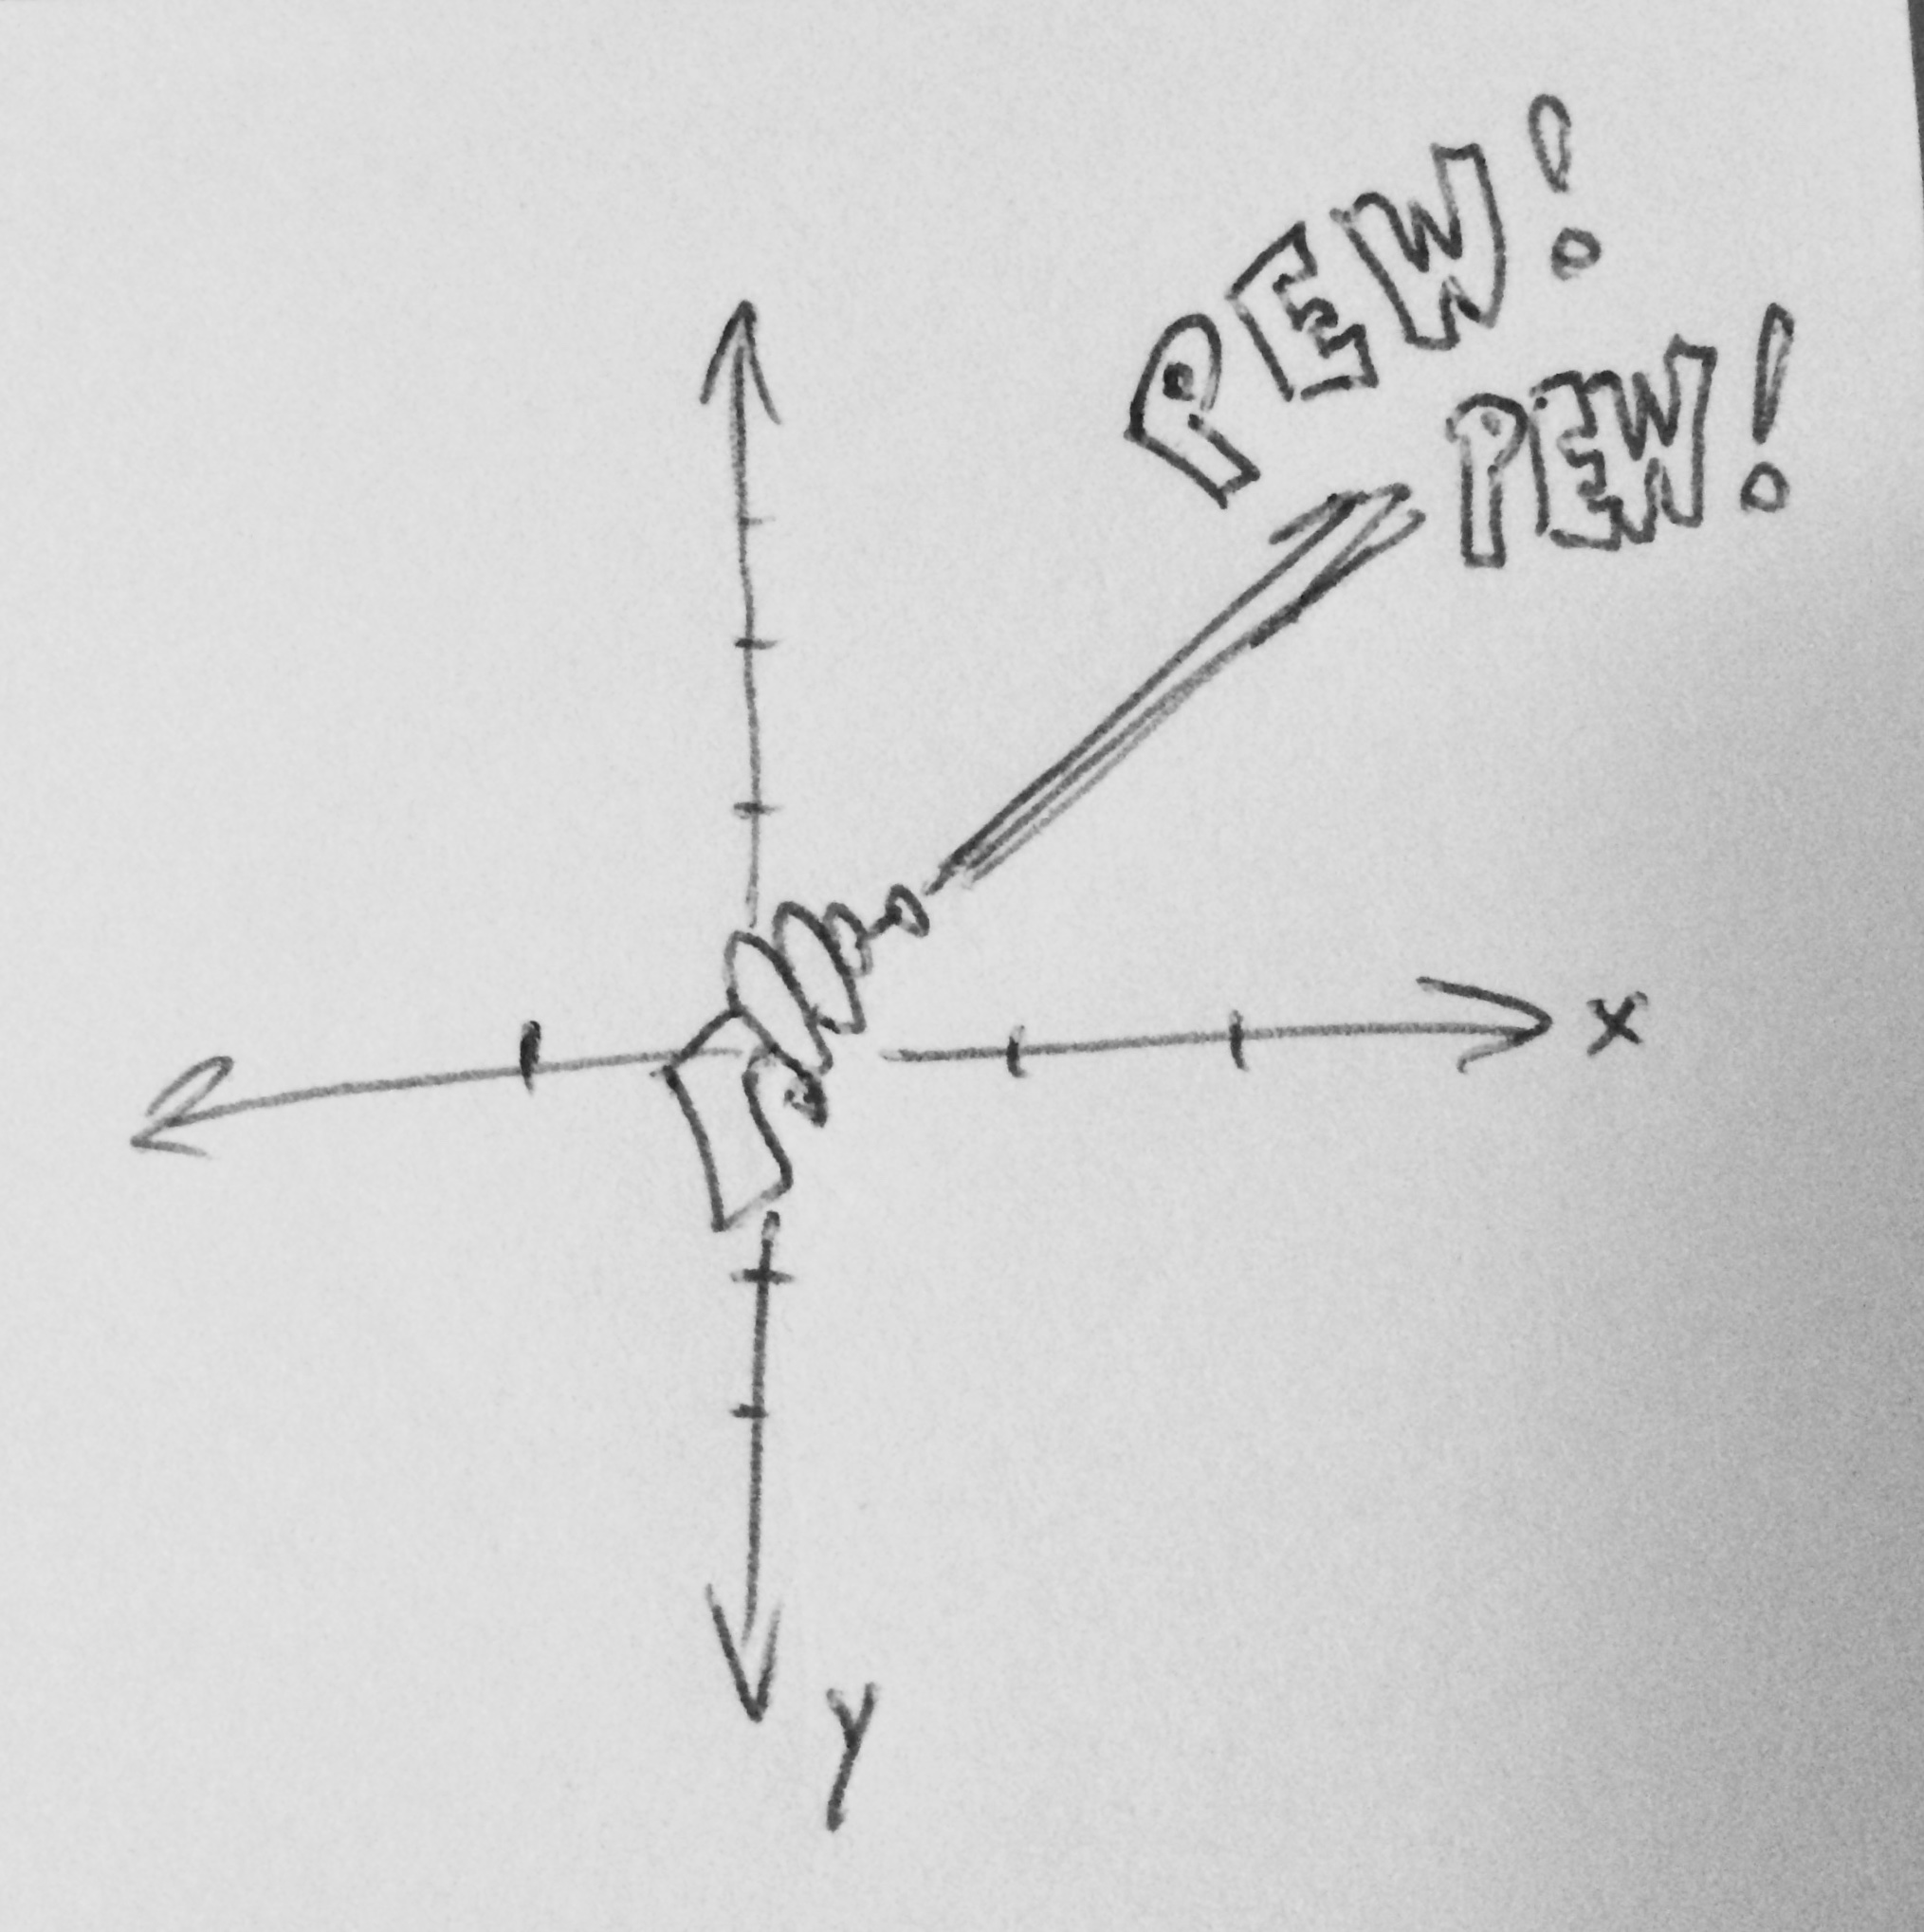 PEW!
PEW!
x
y